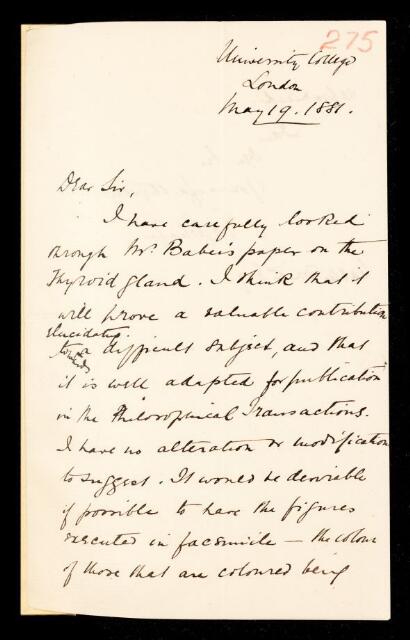 275
University College
London
May 19. 1881.
Dear Sir,
I have carefully looked
through Mr. Baber's paper on the
Thyroid gland. I think that it
will prove a valuable contribution
elucidating
towards a difficult subject, and that
it is well adapted for publication
in the Philosophical Transactions.
I have no alteration or modification
to suggest. It would be desirable
if possible to have the figures
executed in facsimile — the colour
of those that are coloured being